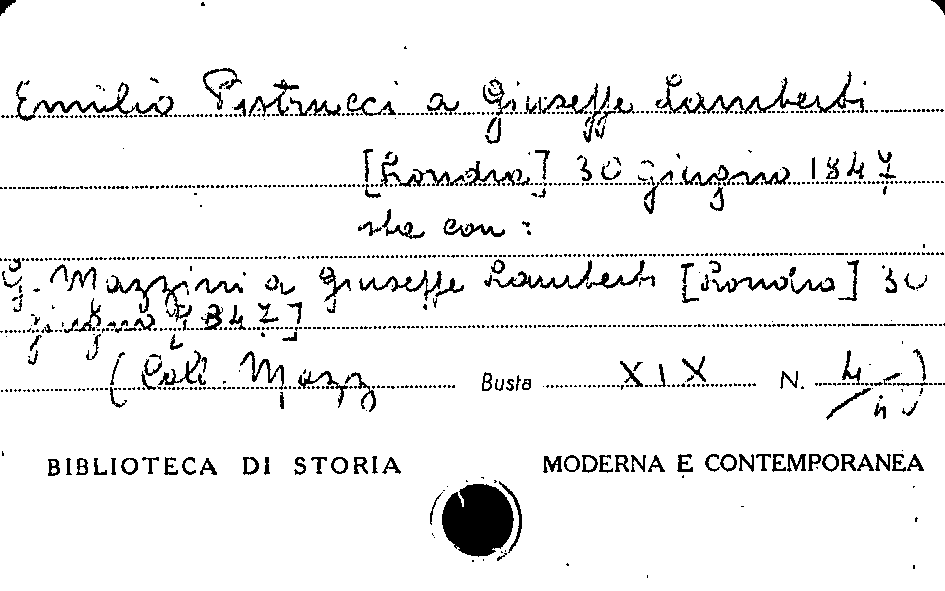 Emilio Pistrucci a Giuseppe Lamberti
[Londra] 30 giugno 1847
sta con:
G. Mazzini a Giuseppe Lamberti [Londra] 30
giugno [1847]
(Coll. Mazz Busta XIX N. 4/
BIBLIOTECA DI STORIA MODERNA E CONTEMPORANEA